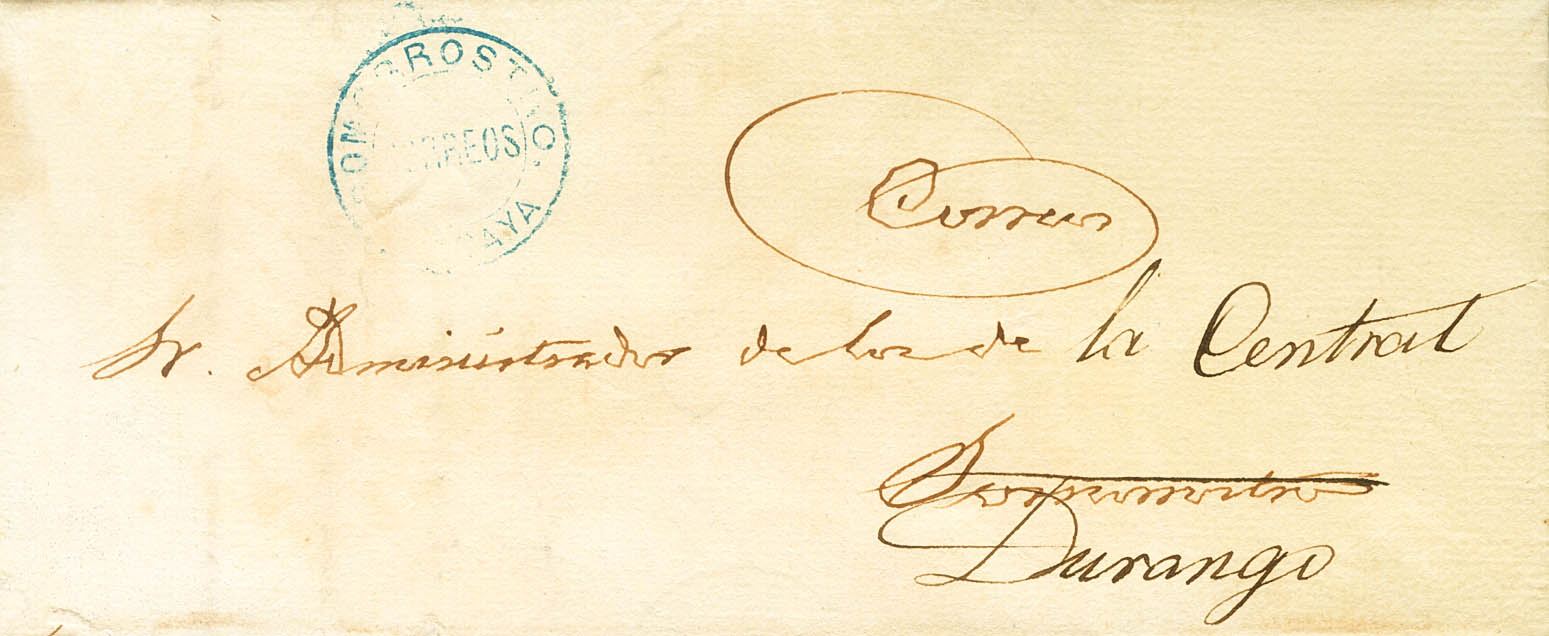 SOMORROSTRO.
CORREOS
VIZCAYA
Correos
Sr. Administrador de los de la Central
Somorrostro
Durango